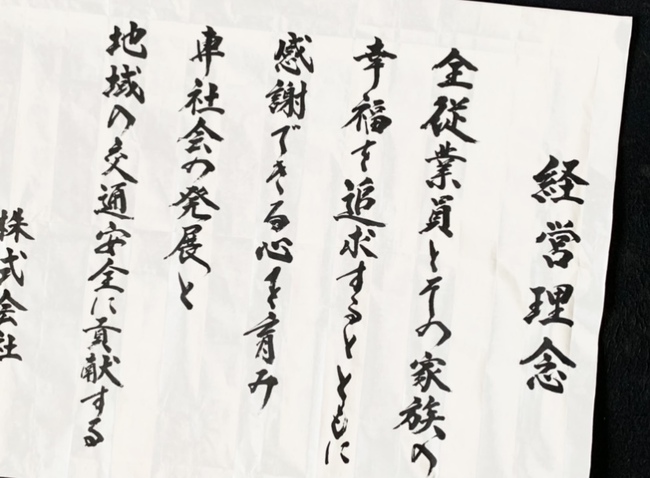 経営理念
全従業員とその家族の
幸福を追求するとともに
感謝できる心を育み
車社会の発展と
地域の交通安全に貢献する
株式会社